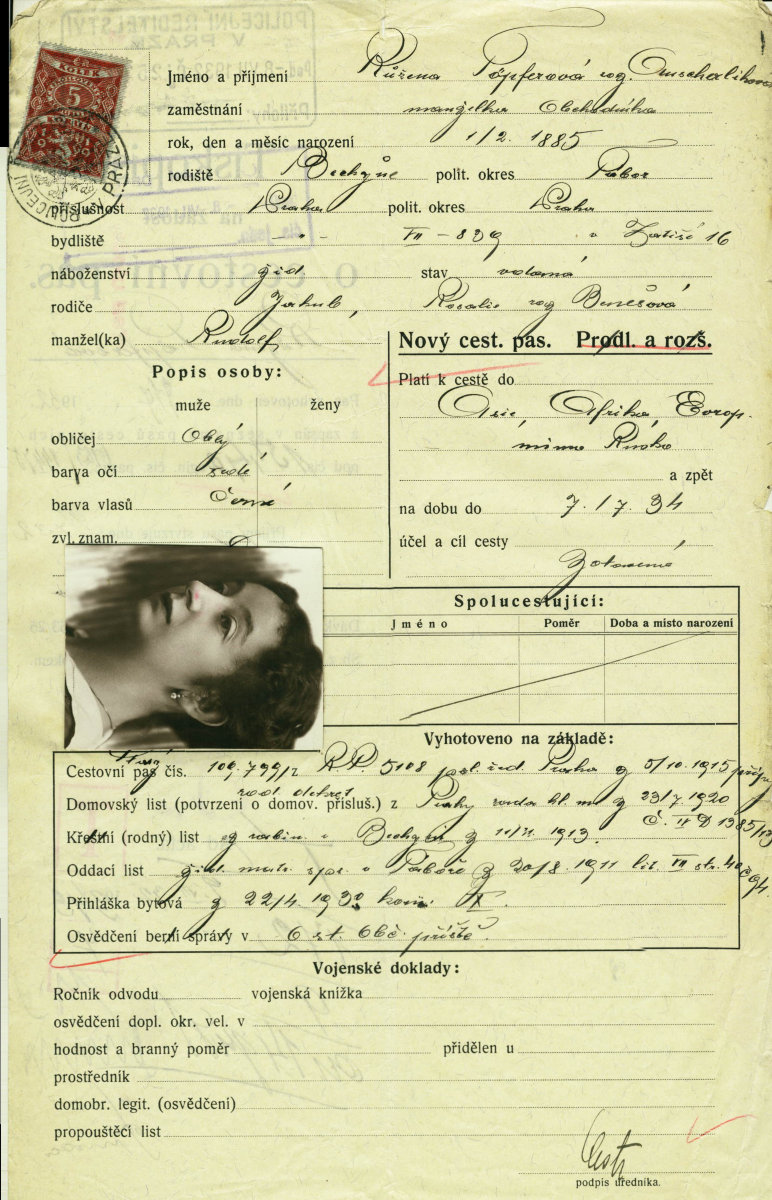 KOLEK
5
POLICEJNÍ
Jméno a příjmení Růžena Töpferová roz.
zaměstnání manželka Obchodníka
rok, den a měsíc narození 1/2. 1885
rodiště Bechyně polit. okres Tábor
příslušnost Praha polit. okres Praha
bydliště -"- VII - 829 v Zátiší 16
náboženství žid. stav vdaná
rodiče Jakub, Rosalie roz. Benešová
manžel(ka) Rudolf,
Nový cest. pas. Prodl. a rozš.
Popis osoby:
Platí k cestě do
muže ženy
Asie, Afrika, Evrop.
obličej Oblý
mimo Ruska
barva očí šedé
a zpět
barva vlasů Černé
na dobu do 7./7. 34
zvl. znam.
účel a cíl cesty
Zotavená
Spolucestující:
Jméno Poměr Doba a místo narození
Vyhotoveno na základě:
Cestovní pas čís. 109,799/2 R.P. 5108 pol. řed. Praha z 5/10. 1915
Domovský list (potvrzení o domov. přísluš.) z Prahy rada hl. m. z 23/7. 1920
Křestní (rodný) list v Bechyni z 1913.
Oddací list žid. matr. v Táboře z 20/8. 1911 lit. VII str. 40
Přihláška bytová z 22/4. 1930 kom.
Osvědčení berní správy v 6 st. Obč. příště.
Vojenské doklady:
Ročník odvodu vojenská knížka
osvědčení dopl. okr. vel. v
hodnost a branný poměr přidělen u
prostředník
domobr. legit. (osvědčení)
propouštěcí list
podpis úředníka.